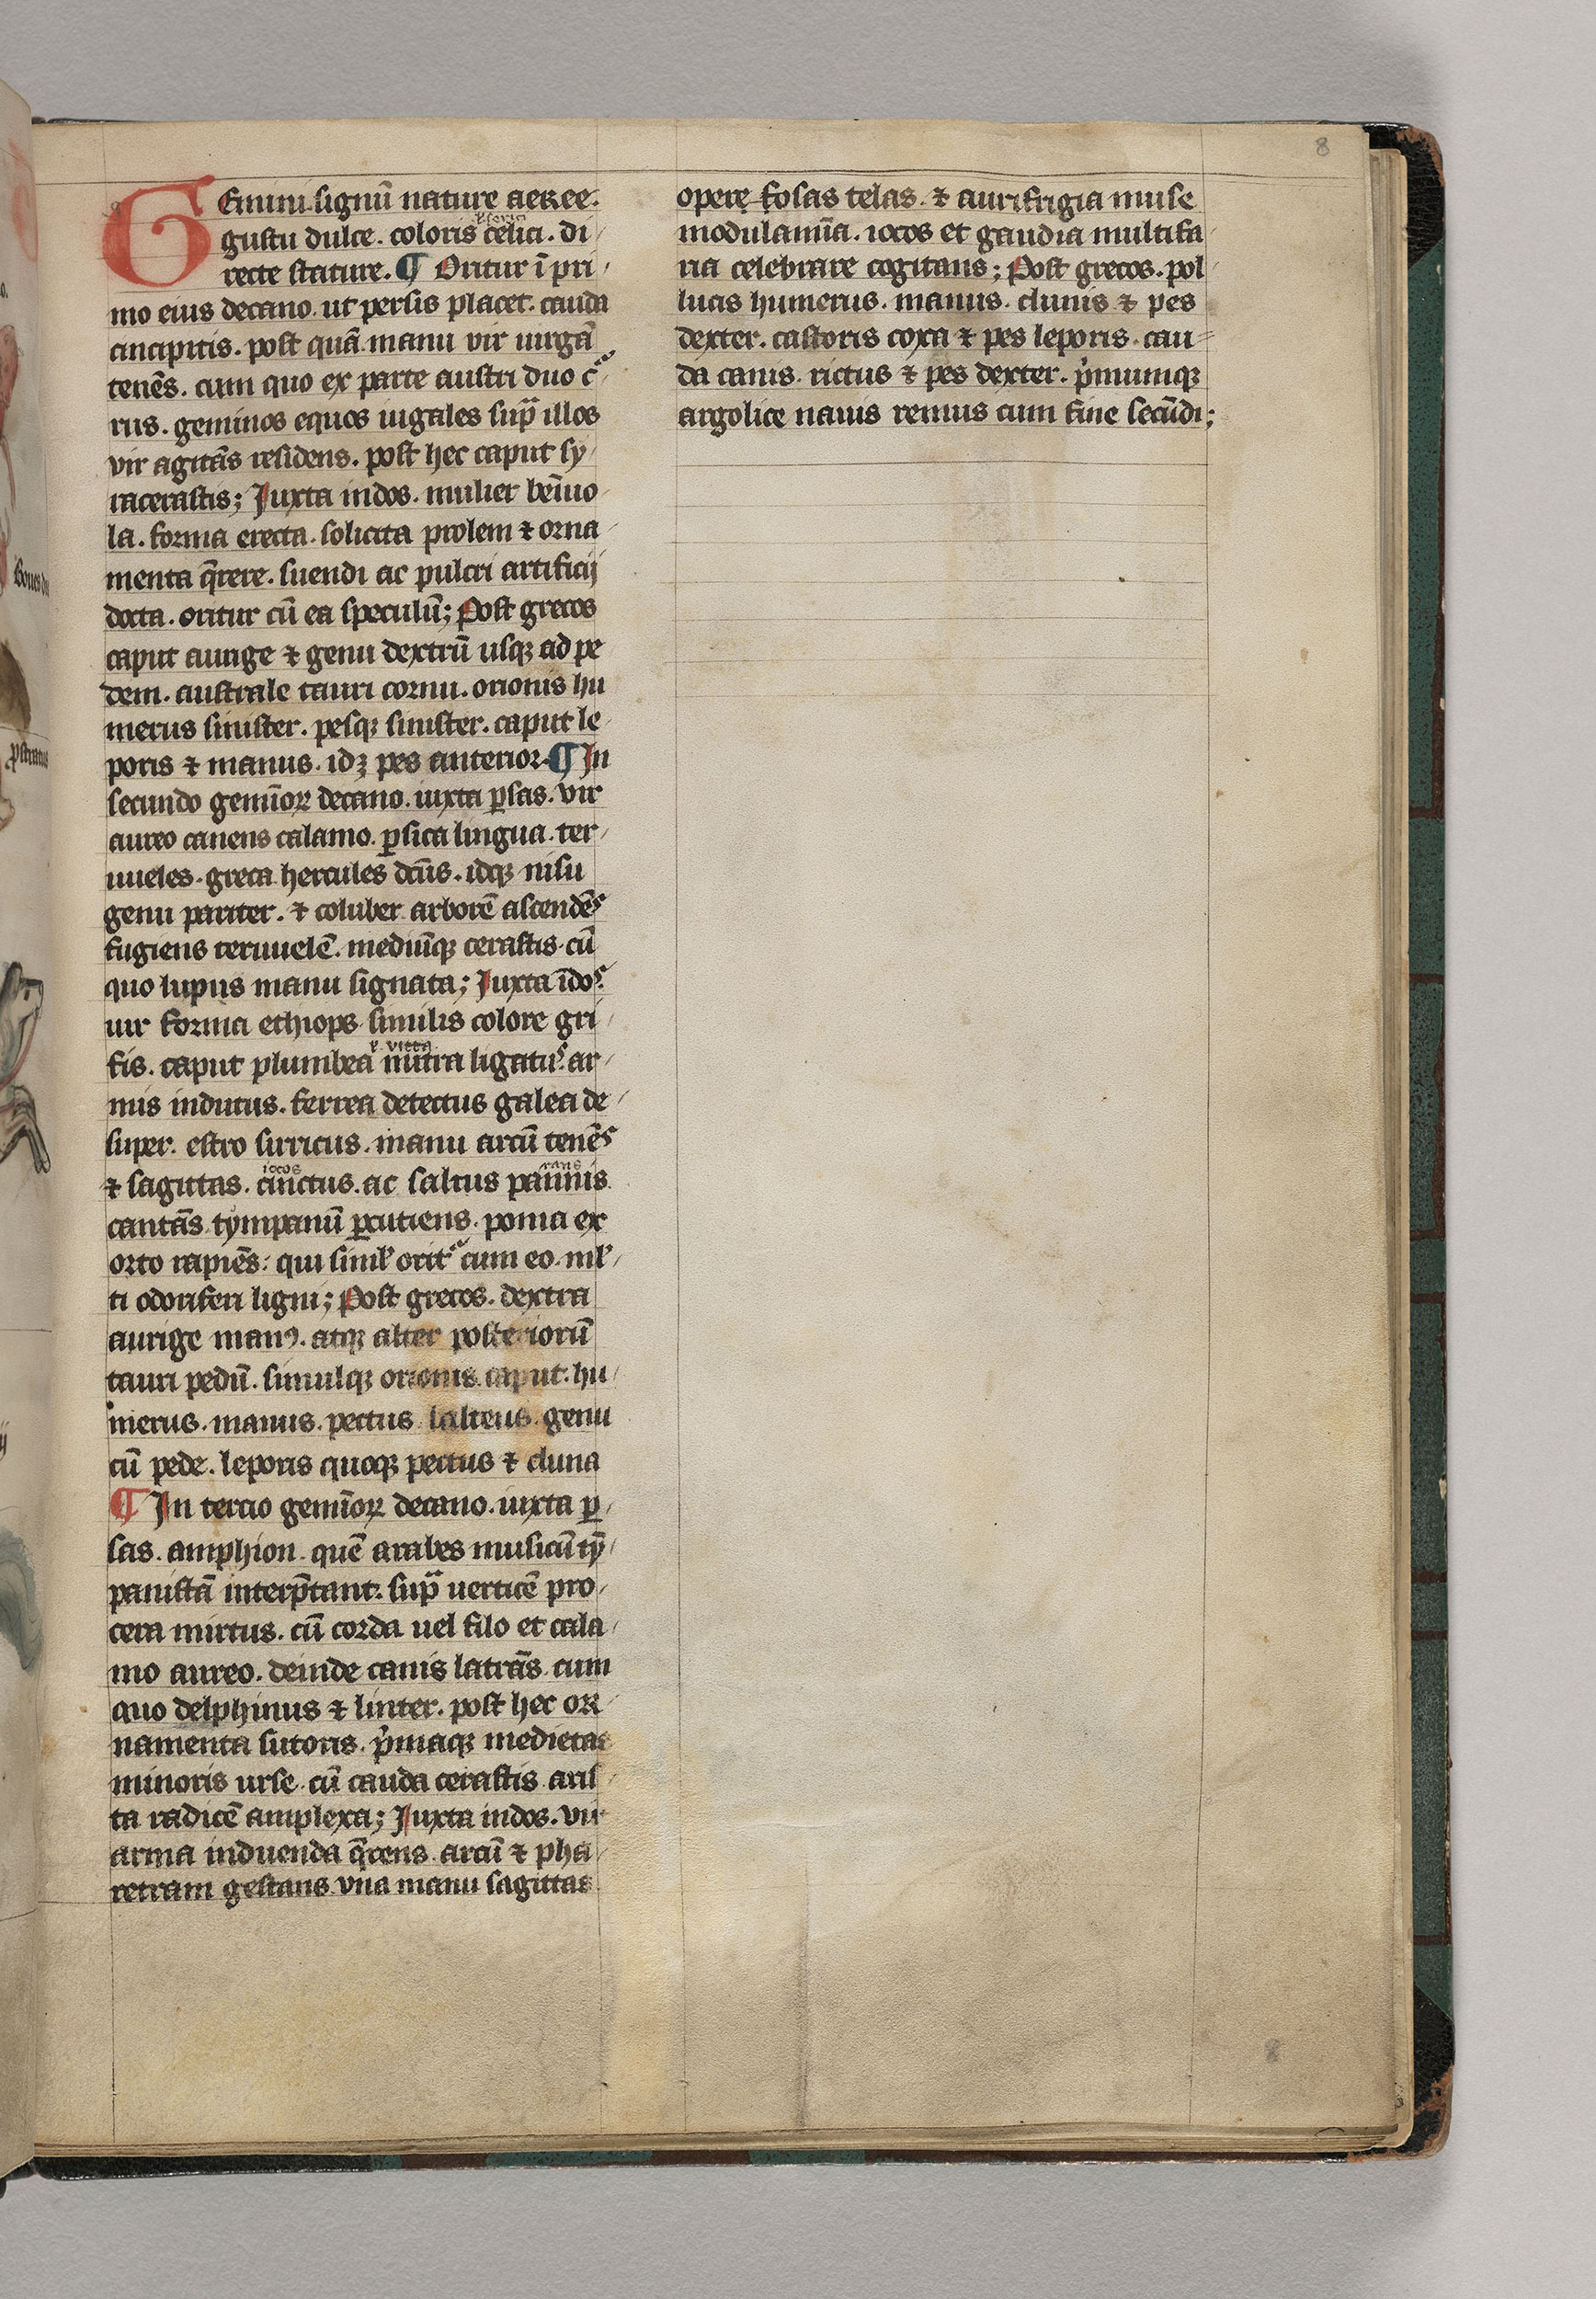 8
Gemini signū nature aeree.
gustu dulce. coloris celici. di
recte stature. ¶ Oritur ī pri
mo eius decano. ut persis placet. cauda
ancipitis. post quā manu vir uirgā
tenēs. cum quo ex parte austri duo c
rus. geminos equos iugales sup illos
vir agitās residens. post hec caput sy
racerastis; Juxta indos. mulier beniuo
la. forma erecta. solicita prolem ⁊ orna
menta q̄rere. suendi ac pulcri artificij
docta. oritur cū ea speculū; Post grecos
caput aurige ⁊ genu dextrū usqꝫ ad pe
dem. australe tauri cornu. orionis hu
merus sinister. pesqꝫ sinister. caput le
poris ⁊ manus. idꝫ pes anterior. ¶ In
secundo geminoꝝ decano. iuxta ꝑsas. vir
aureo canens calamo. ꝑsica lingua. ter
uueles. greca hercules dc̄us. idqꝫ nisu
genu pariter. ⁊ coluber arborē ascendēs
fugiens teruuelē. mediūqꝫ cerastis. cū
quo lupus manu signata; Juxta īdos.
uir forma ethiops similis colore gri
fis. caput plumbea mitra ligatus. ar
v. vitta
mis indutus. ferrea detectus galea de
super. estro sirricus. manu arcū tenēs
⁊ sagittas. cinctus. ac saltus pannis
iocos
cantās tympanū ꝑcutiens. poma ex
orto rapiēs: qui simil' orit' cum eo. ml'
ti odoriferi ligni; Post grecos. dextra
aurige manꝰ. atqꝫ alter posteriorū
tauri pedū. simulqꝫ orionis caput. hu
merus. manus. pectus balteus. genu
cū pede. leporis quoqꝫ pectus ⁊ cluna
¶ In tercio geminoꝝ decano. iuxta ꝑ
sas. amphion. quē arabes musicū tȳ
panistā interp̄tant. sup uerticē pro
cera mirtus. cū corda uel filo et cala
mo aureo. deinde canis latrās. cum
quo delphinus ⁊ linter. post hec or
namenta sutoris. p̍maqꝫ medietas
minoris urse. cū cauda cerastis aris
ta radicē amplexa; Juxta indos. vir
arma induenda q̄rens. arcū ⁊ pha
retram gestans vna manu sagittas
opere fosas telas. ⁊ aurifrigia muse
modulamīa. iocos et gaudia multifa
ria celebrare cogitans; Post grecos. pol
lucis humerus. manus. clunis ⁊ pes
dexter. castoris coxa ⁊ pes leporis. cau
da canis. rictus ⁊ pes dexter. p̍mumqꝫ
argolice nauis remus cum fine secūdi;
8